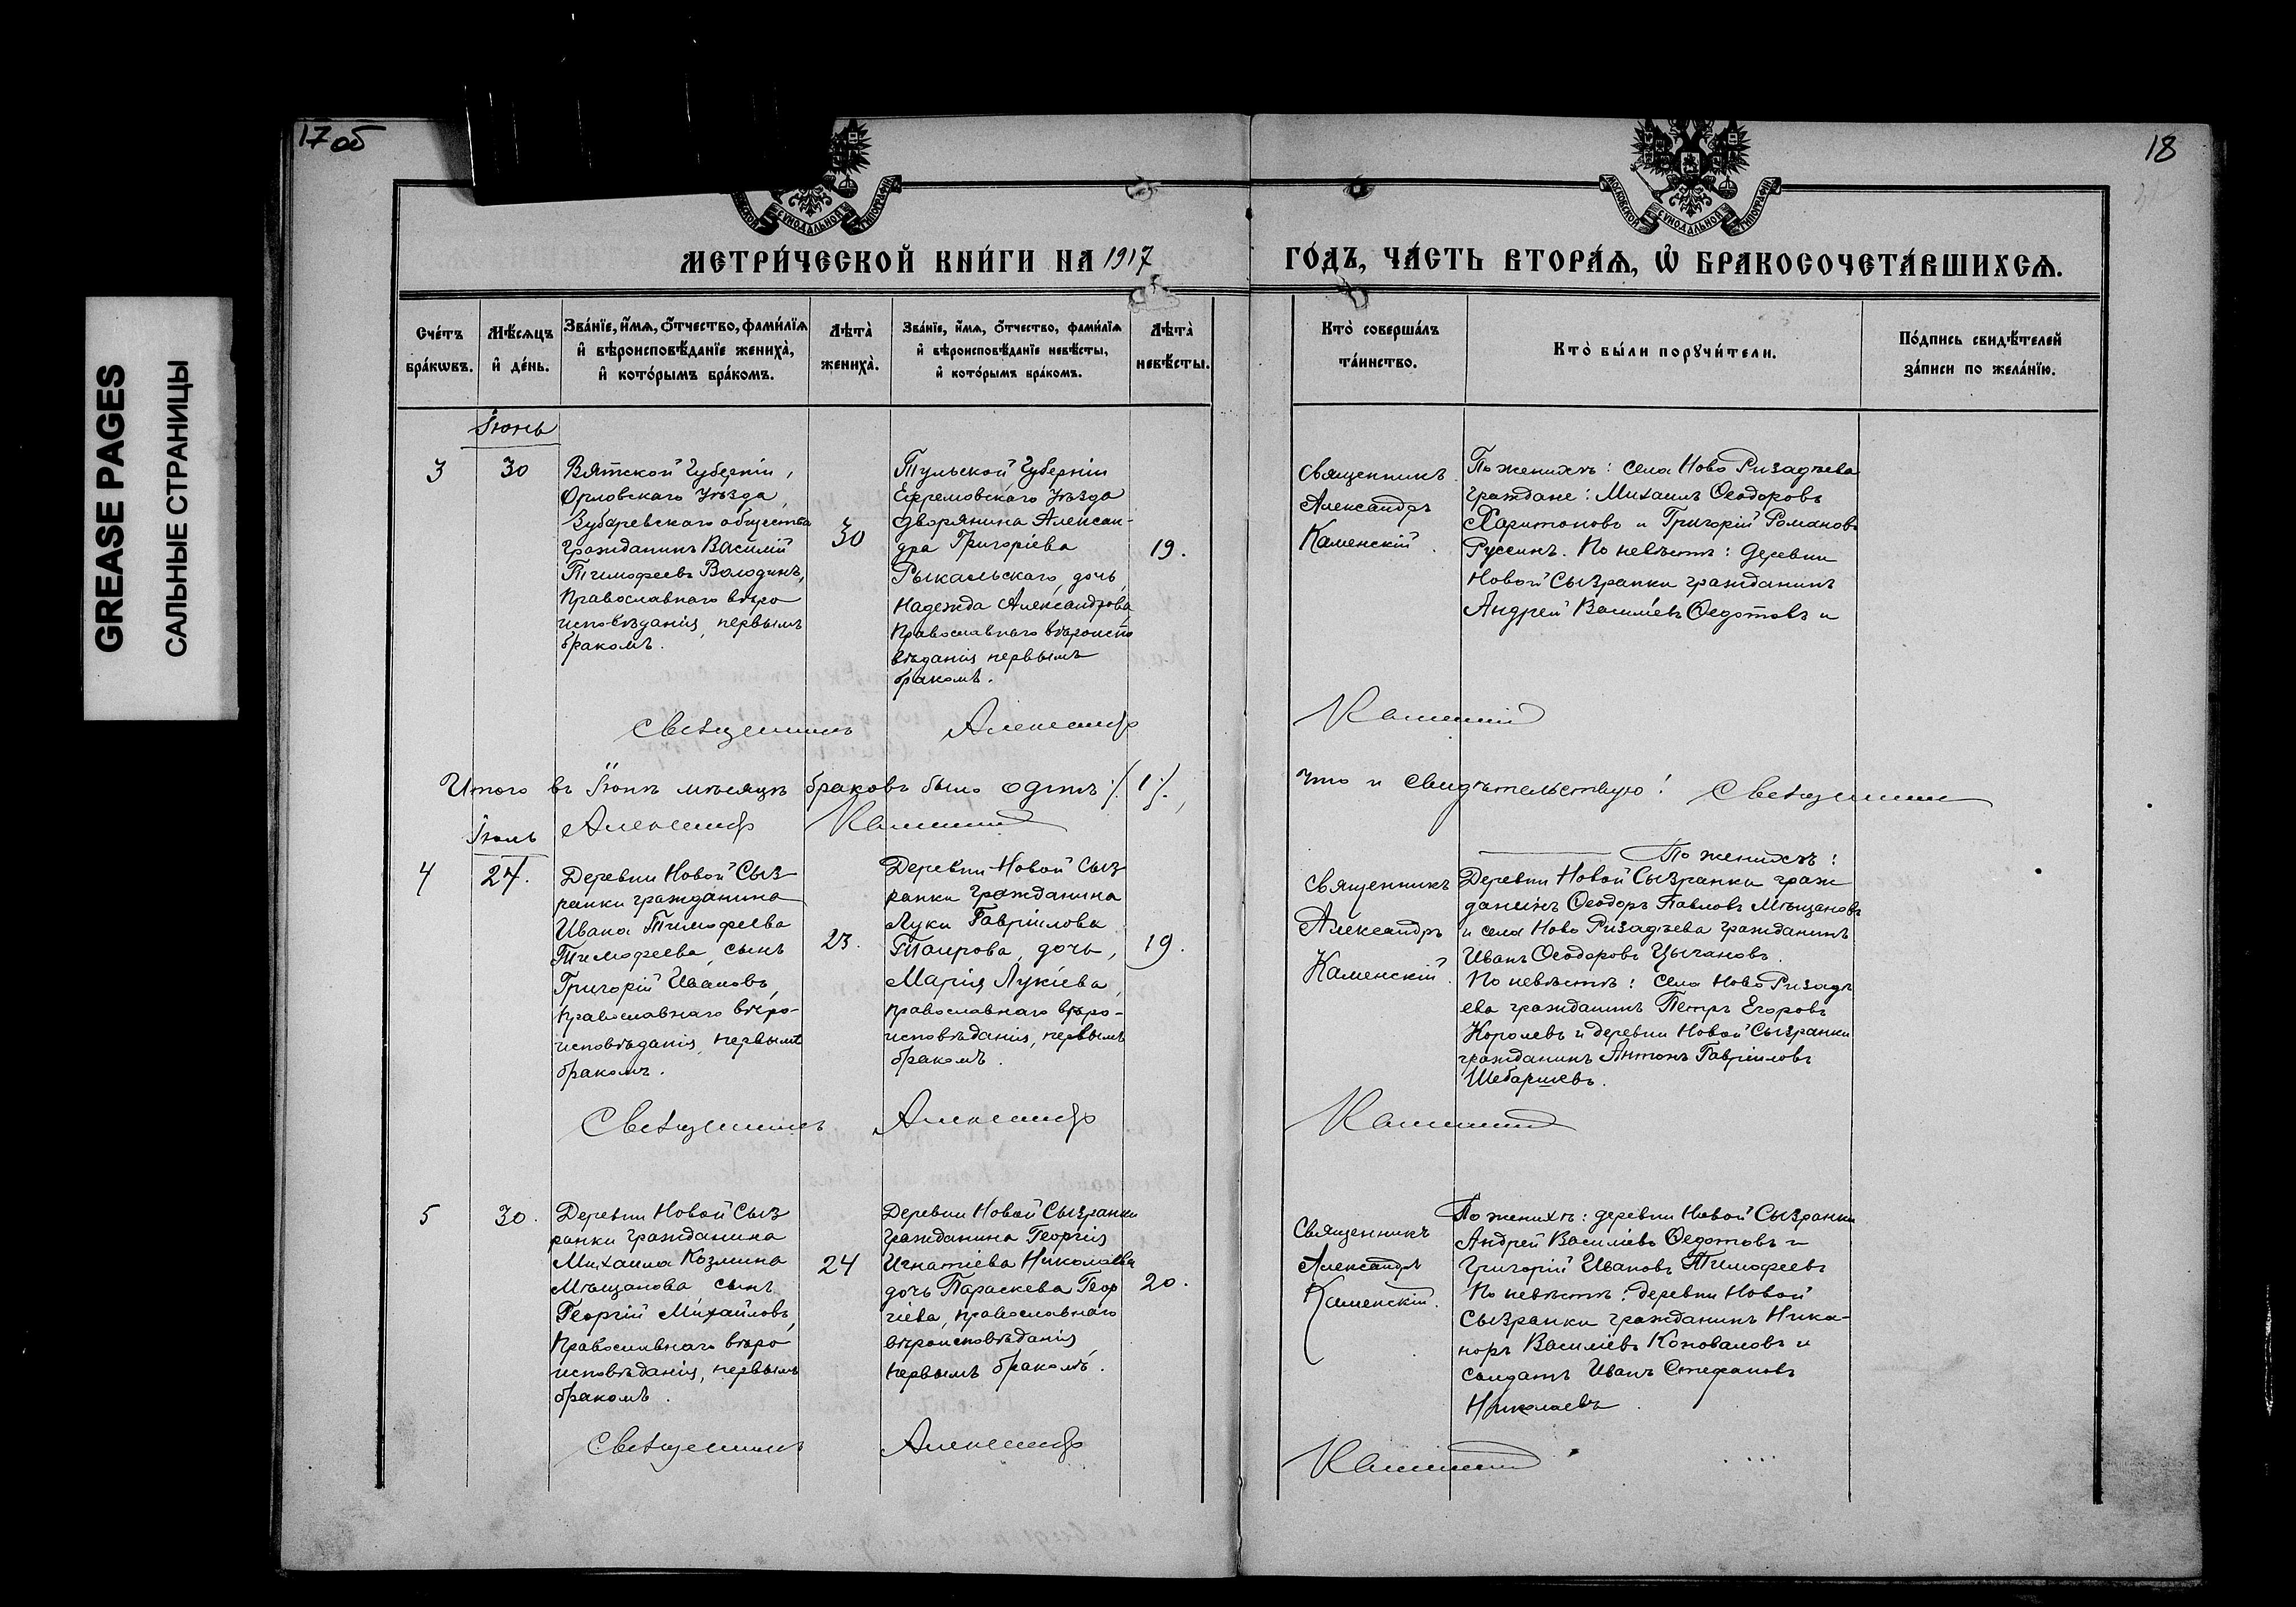 GREASE PAGES
САЛЬНЫЕ СТРАНИЦЫ
17 об
18
МОСКОВСКОЙ СѴНОДАЛЬНОЙ ТИПОГРАФІИ
МЕТРИ́ЧЕСКОЙ КНИ́ГИ НА 1917
ГО́ДЪ, ЧА́СТЬ ВТОРА́Ѧ, Ѡ҆ БРАКОСОЧЕТА́ВШИХСѦ.
Сче́тъ
бра́кѡвъ.
Мѣ́сѧцъ
и҆ де́нь.
Зва́нїе, и҆́мѧ, ѻ҆́тчество, фами́лїѧ
и҆ вѣроисповѣ́данїе жениха̀,
и҆ кото́рымъ бра́комъ.
Лѣта̀
жениха̀.
Зва́нїе, и҆́мѧ, ѻ҆́тчество, фами́лїѧ
и҆ вѣроисповѣ́данїе невѣ́сты,
и҆ кото́рымъ бра́комъ.
Лѣта̀
невѣ́сты.
Кто̀ соверша́лъ
та́инство.
Кто̀ бы́ли порꙋчи́тели.
По́дпись свидѣ́телей
за́писи по жела́нїю.
Іюнь
3
30
Вятской Губерніи,
Орловскаго Уѣзда,
Зубаревскаго общества
гражданинъ Василій
Тимофеевъ Володинъ,
православнаго вѣро
исповѣданія, первымъ
бракомъ.
30
Тульской Губерніи
Ефремовскаго Уѣзда
дворянина Алексан-
дра Григоріева
Рыкальскаго, дочь,
Надежда Александрова,
православнаго вѣроиспо
вѣданія первымъ
бракомъ.
19.
Священникъ
Александръ
Каменскій.
По женихѣ: села Ново Ризадѣева
граждане: Михаилъ Ѳеодоровъ
Харитоновъ и Григорій Романовъ
Руссинъ. По невѣстѣ: деревни
Новой Сызранки гражданинъ
Андрей Василіевъ Ѳедотовъ и
Священникъ Александръ
Каменскій
Итого въ Іюнѣ мѣсяцѣ браковъ было одинъ /.1/.,
что и свидѣтельствую! Священникъ
Александръ Каменскій
Іюль
4
24.
Деревни Новой Сыз
ранки гражданина
Ивана Тимофеева
Тимофеева, сынъ
Григорій Ивановъ,
православнаго вѣро-
исповѣданія, первымъ
бракомъ.
23.
Деревни Новой Сыз
ранки гражданина
Луки Гавріилова
Таирова, дочь,
Марія Лукіева,
православнаго вѣро-
исповѣданія, первымъ
бракомъ.
19.
Священникъ
Александръ
Каменскій.
По женихѣ:
Деревни Новой Сызранки граж
данинъ Ѳеодоръ Павловъ Мѣщановъ
и села Ново Ризадѣева гражданинъ
Иванъ Ѳеодоровъ Цычановъ.
По невѣстѣ: села Ново Ризадѣ
ева гражданинъ Петръ Егоровъ
Королевъ и деревни Новой Сызранки
гражданинъ Антонъ Гавріиловъ
Шебаршевъ.
Священникъ Александръ
Каменскій
5
30.
Деревни Новой Сыз
ранки гражданина
Михаила Козмина
Мѣщанова сынъ
Георгій Михайловъ,
православнаго вѣро
исповѣданія, первымъ
бракомъ.
24
Деревни Новой Сызранки
гражданина Георгія
Игнатіева Николаева
дочь Параскева Геор
гіева, православнаго
вѣроисповѣданія
первымъ бракомъ.
20.
Священникъ
Александръ
Каменскій.
По женихѣ: деревни Новой Сызранки
Андрей Василіевъ Ѳедотовъ и
Григорій Ивановъ Тимофеевъ
По невѣстѣ: деревни Новой
Сызранки гражданинъ Ника-
норъ Василіевъ Коноваловъ и
солдатъ Иванъ Стефановъ
Николаевъ.
Священникъ Александръ
Каменскій